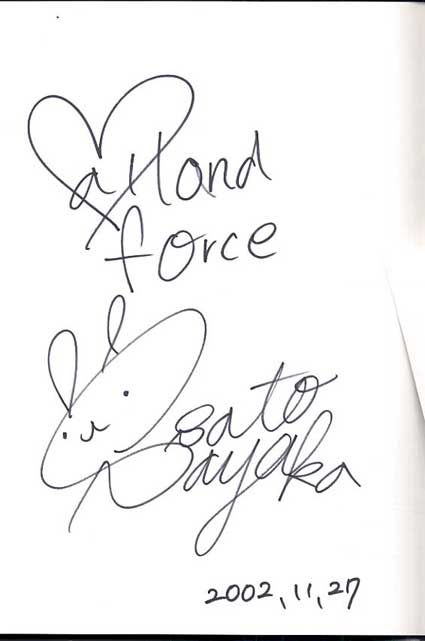 force
sato
Sayaka
2002,11,27